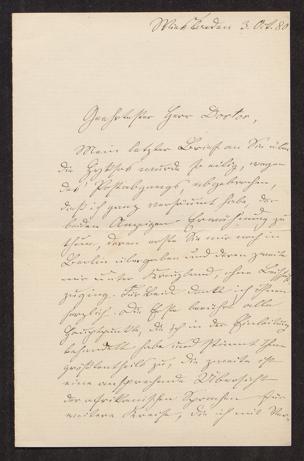 Wiesbaden 3. Oct. 80
Geehrtester Herr Doctor,
Mein letzter Brief an Sie über
die Hyksos wurde so eilig, wegen
des Postabganges, abgebrochen,
daß ich ganz versäumt habe, der
beiden Anzeigen Erwähnung zu
thun, deren erste Sie mir noch in
Berlin übergeben und deren zweite
mir unter Kreuzband, ohne
zuging. Für beide danke ich Ihnen
herzlich. Die Erste berichtet alle
Hauptpunkte, die ich in der Einleitung
behandelt habe und stimmt ihnen
größtentheils zu, die zweite ist
eine ansprechende Übersicht
der afrikanischen Sprachen für
weitere Kreise, die ich mit Ver-